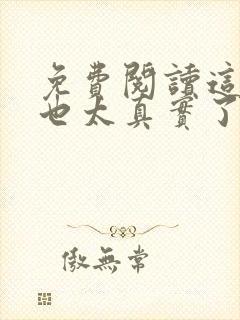 免費閱讀這
也太真實了
傲無常